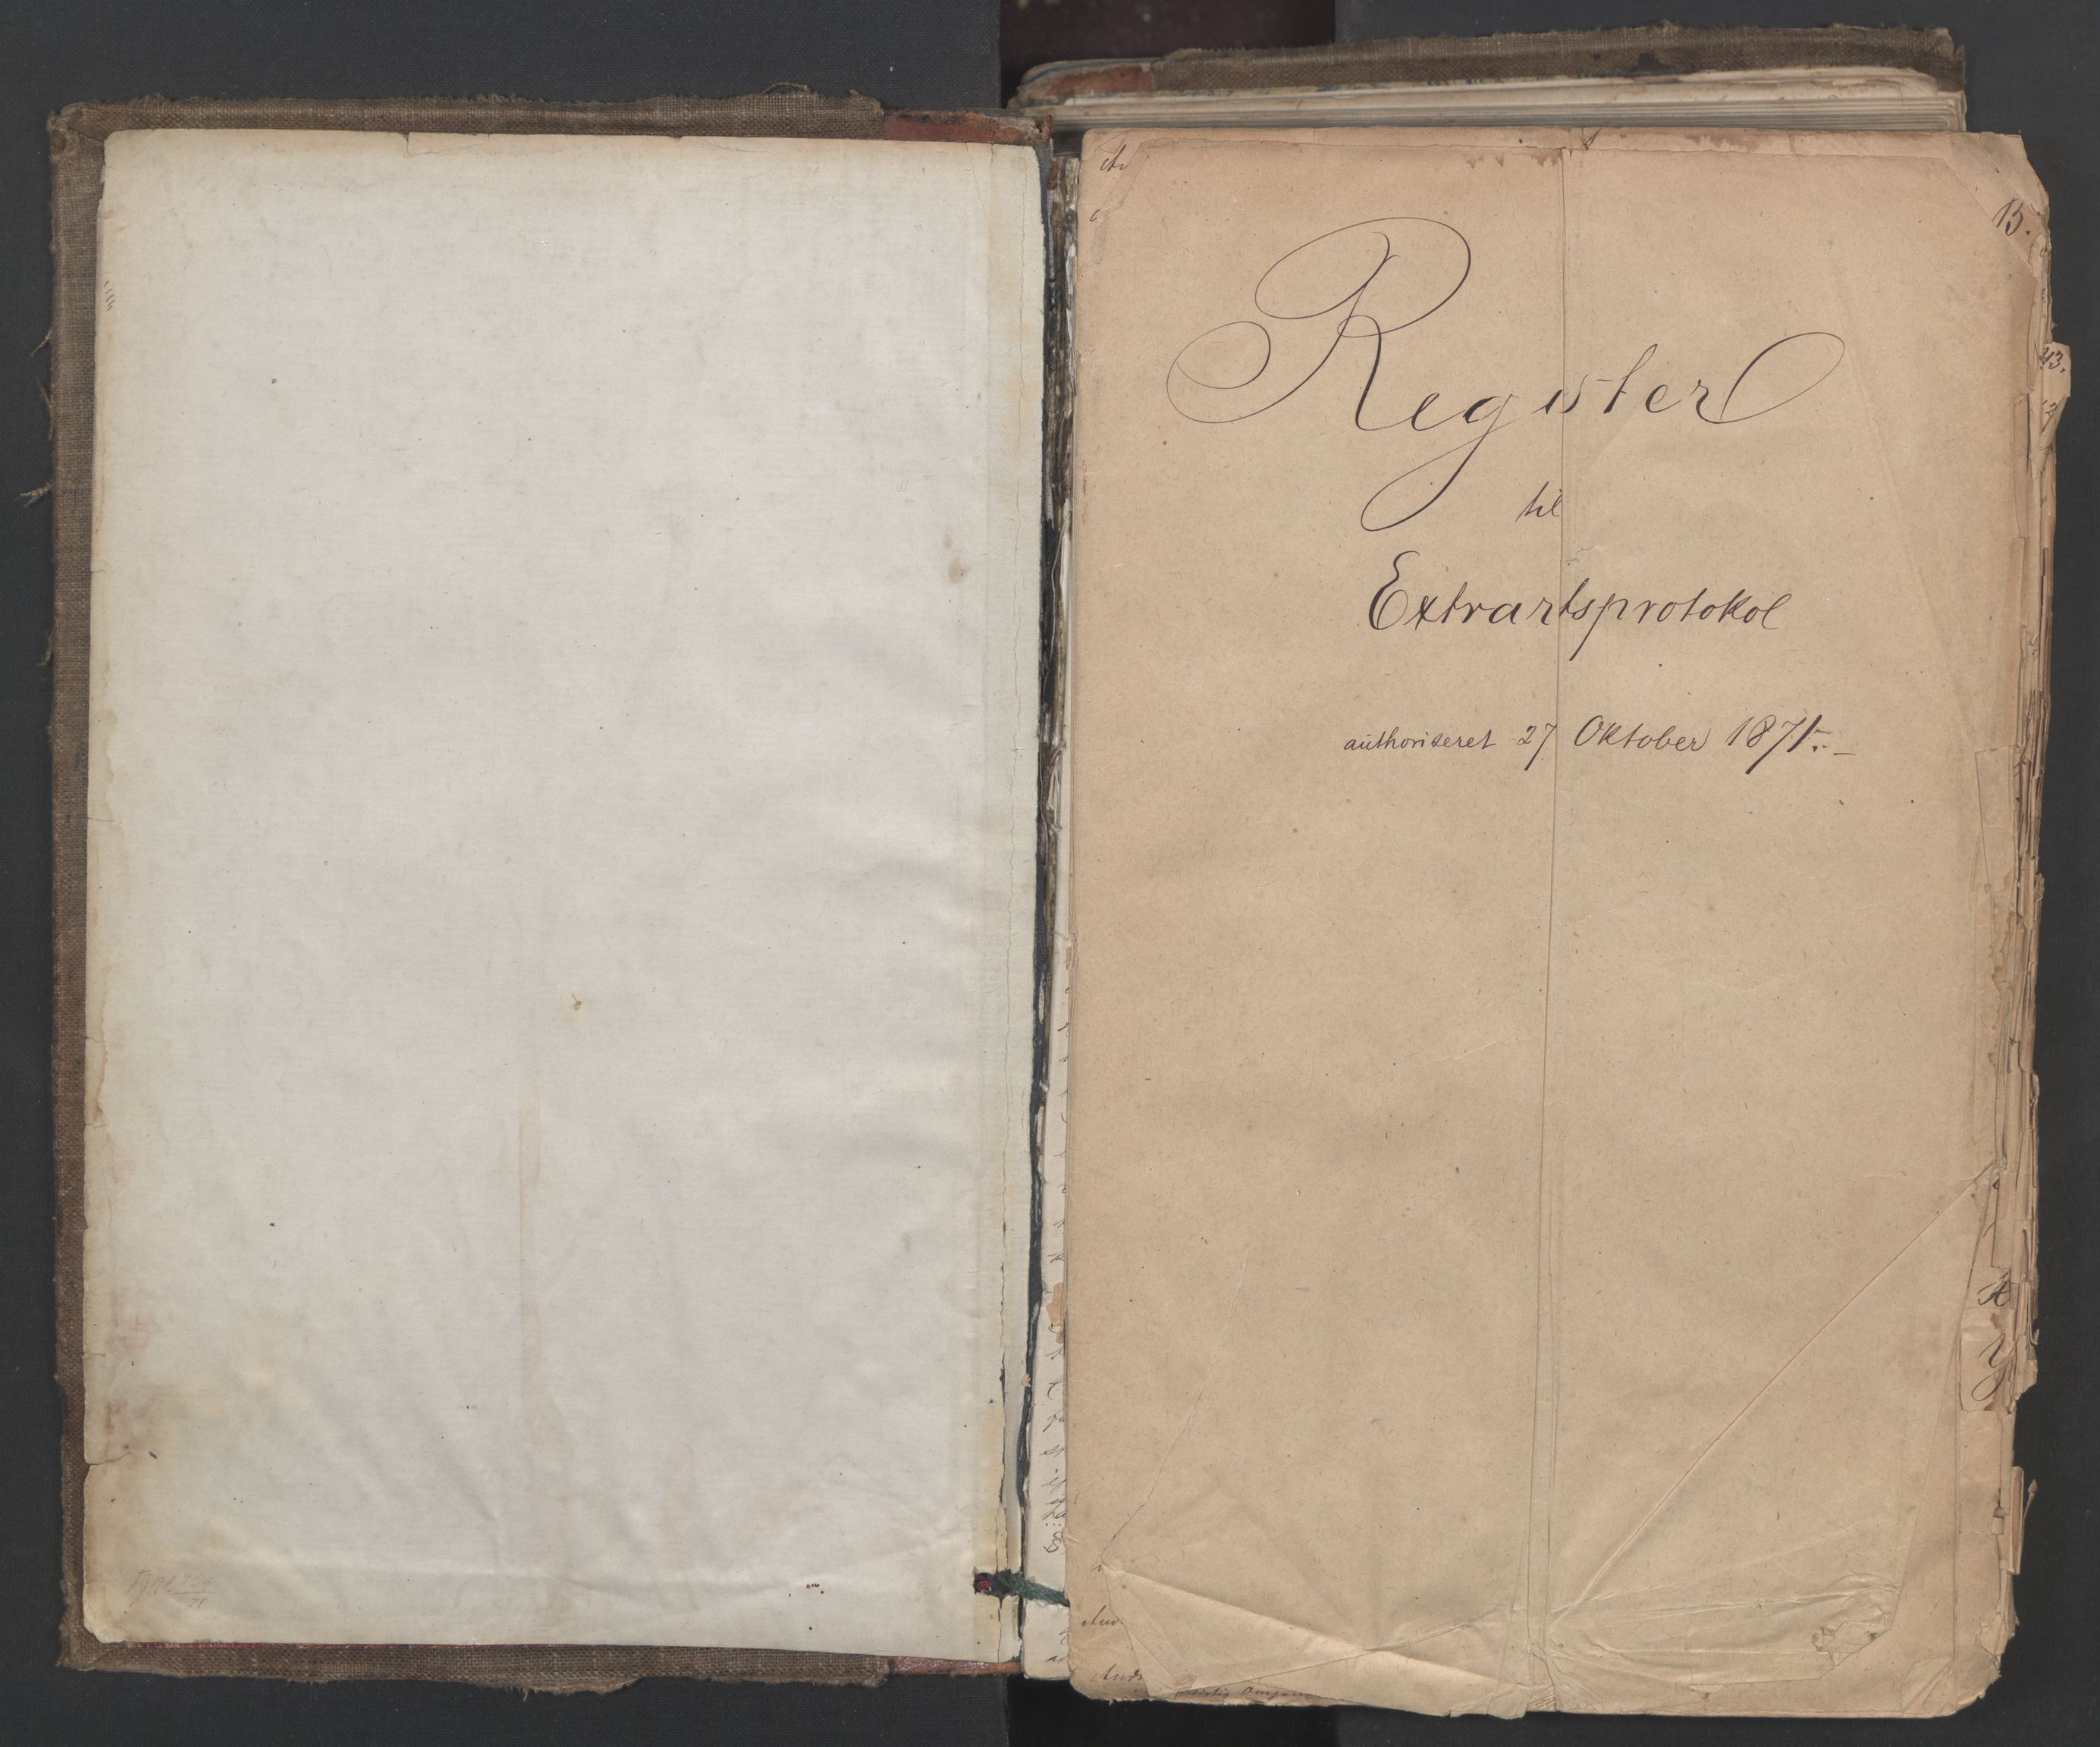 15.
Register
til
Extrartsprotokol
authoriseret 27 Oktober 1871.
43.
Y